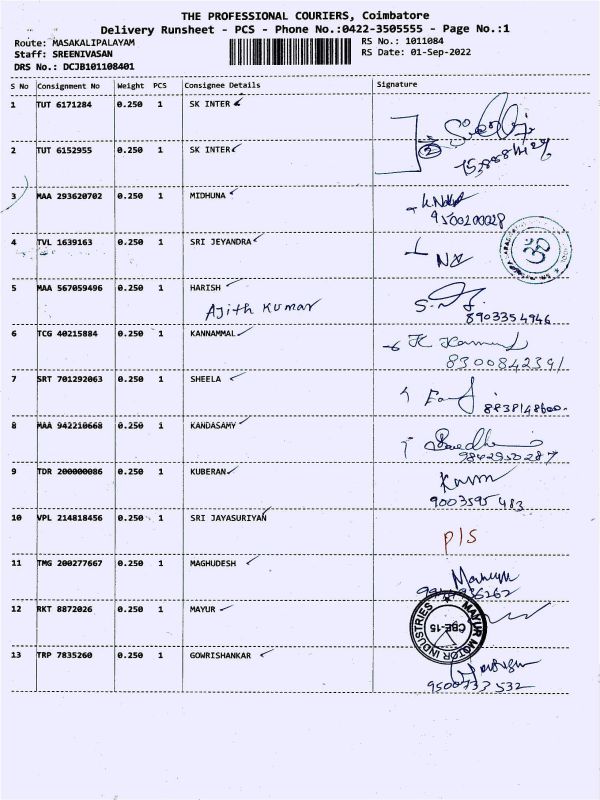 THE PROFESSIONAL COURIERS, Coimbatore
Delivery Runsheet - PCS - Phone No.:0422-3505555 - Page No.:1
Route: MASAKALIPALAYAM RS No.: 1011084
Staff: SREENIVASAN RS Date: 01-Sep-2022
DRS No.: DCJB101108401
S No Consignment No Weight PCS Consignee Details Signature
1 TUT 6171284 0.250 1 SK INTER
2 TUT 6152955 0.250 1 SK INTER
3 MAA 293620702 0.250 1 MIDHUNA
9500200028
4 TVL 1639163 0.250 1 SRI JEYANDRA
5 MAA 567059496 0.250 1 HARISH
Ajith Kumar
8903354946
6 TCG 40215884 0.250 1 KANNAMMAL
8300842391
7 SRT 701292063 0.250 1 SHEELA
8838148600
8 MAA 942210668 0.250 1 KANDASAMY
9842950287
9 TDR 200000086 0.250 1 KUBERAN
9003595 483
10 VPL 214818456 0.250 1 SRI JAYASURIYAN
P/S
11 TMG 200277667 0.250 1 MAGHUDESH
12 RKT 8872026 0.250 1 MAYUR
MAYUR MOTOR INDUSTRIES
CBE-15
13 TRP 7835260 0.250 1 GOWRISHANKAR
9500733 532